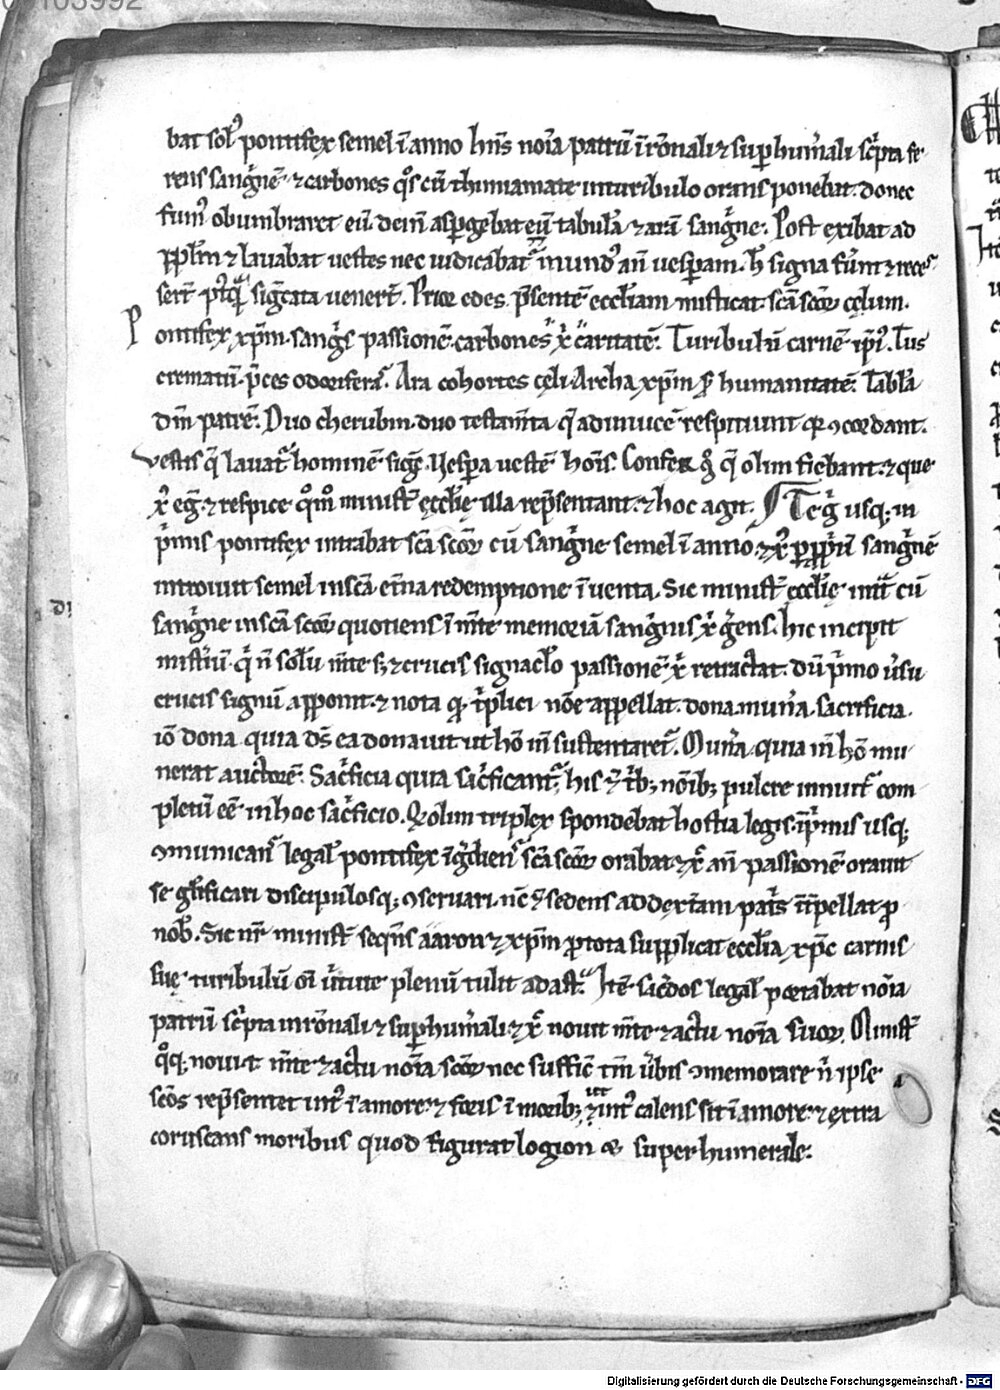 00103992
bat sol᷒ pontifex semel ī anno hn̄s noīa patrū ī rōnali ⁊ suꝑhum̄ali sc̄pta fe
rens sanḡnē ⁊ carbones q̊s cū thimiamate in turibulo orans ponebat. donec
fum᷒ obumbraret eū. dein̄ asꝑgebat eū tabulā ⁊ arā sanḡne. Post exibat ad
pp̄lm ⁊ lavabat vestes nec iudicabat᷑ mund᷒ an̄ vesꝑam. h̄ signa fuer̄t ⁊ reces
ser̄t pt̄q̄ sig̅cata venert̄. Prior edes p̄sentē eccl̄iam misticat. scā scōꝝ cęlum.
Pontifex xp̄m. sangis passionē. carbones xp̄i caritatē. Turibulū carnē ip̄i᷒. Tus
crematū p̄ces odoriferā. Ara cohortes cęli. Archa xp̄m ꝑ humanitatē. Tabl̄a
dm̄ patrē. Duo cherubin. duo testam̄ta q̄ ad inuicē respitiunt ꝗr ꝯcordant.
vestis q̄ lavat᷑ hominē sig̅t. Vesꝑa vestē hōis. Confer g̊ q̄ olim fiebant. ⁊ que
xp̄c eg̅t. ⁊ respice q̊m̊ minist̄ ęccl̄ię illa rep̄sentant. ⁊ hoc agit. Iteg̊ usq; in
p̄mis pontifex intrabat scā scōꝝ cū sanḡne semel ī anno. ⁊ xp̄c ꝑ pp̄iū sanḡnē
introivit semel in scā etn̄a redemptione ī venta. Sic minist̄ eccl̄ię intt̄ cū
dī
sanḡne in scā scōꝝ quotiens ī m̄te memoriā sanḡnis xp̄i g̊ens. hic incipit
mist̄iū. q̄ n̄ solū m̄te s; ⁊ crucis signacl̄o passionē xp̄i retractat. dū p̄mo ūsu
crucis signū apponit. ⁊ nota ꝗ t̄plici nōe appellat. dona. mun̄a. sacrificia.
iō dona quia ds̄ ea donavit ut hō in̄ sustentaret᷑. Mun̄a. quia in̄ hō mu
nerat auctorē. Sac̄ficia quia sac̄ficant᷑. his g̊ t̄b; nōib; pulcre innuit᷑ com
pletū eē in hoc sac̄ficio. Q̊ olim triplex spondebat hostia legis. ip̄mis usq;
ꝯmunicant᷑ legal᷒ pontifex īg̊diens scā scōꝝ orabat. ⁊ xp̄c an̄ passionē oravit
se gl̄ificari discipulosq; ꝯservari. nc̄ g̊ sedens ad dext̄am patis int̄pellat ꝓ
nob᷒. Sic nr̄ minist̄ seqn̄s aaron ⁊ xp̄m ꝓ tota supplicat eccl̄ia. xp̄c carnis
suę turibulū oī v̄tute plenū tulit ad ast̄a. Itē sac̄dos legal᷒ portabat noīa
patrū sc̄pta in rōnali ⁊ suꝑhum̄ali ⁊ xp̄c novit m̄te ⁊ actu noīa suoꝝ. Minist̄
q̊q; novit m̄te ⁊ actu noīa scōꝝ nec suffic̄ tm̄ ūbis ꝯmemorare n̄ ipse
scōs rep̄sentet int᷒ ī amore ⁊ foris ī morib; ⁊ int᷒ calens sit ī amore ⁊ extra
coruscans moribus quod figurat logion ⁊ superhumerale:
Digitalisierung gefördert durch die Deutsche Forschungsgemeinschaft - DFG